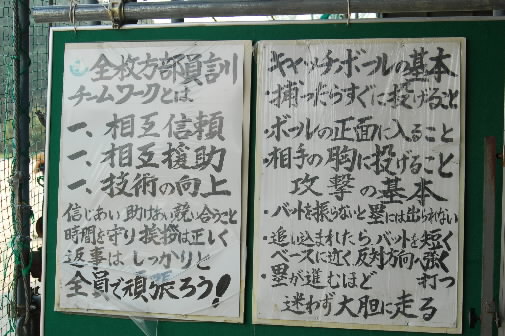 全枚方部員訓
チームワークとは
一、相互信頼
一、相互援助
一、技術の向上
信じあい 助けあい 競い合うこと
時間を守り挨拶は正しく
返事は しっかりと
全員で頑張ろう!
キャッチボールの基本
・捕ったらすぐに投げること
・ボールの正面に入ること
・相手の胸に投げること
攻撃の基本
・バットを振らないと塁には出られない
・追い込まれたら バットを短く
ベースに近く反対方向へ強く
打つ
・塁が進むほど
迷わず大胆に走る